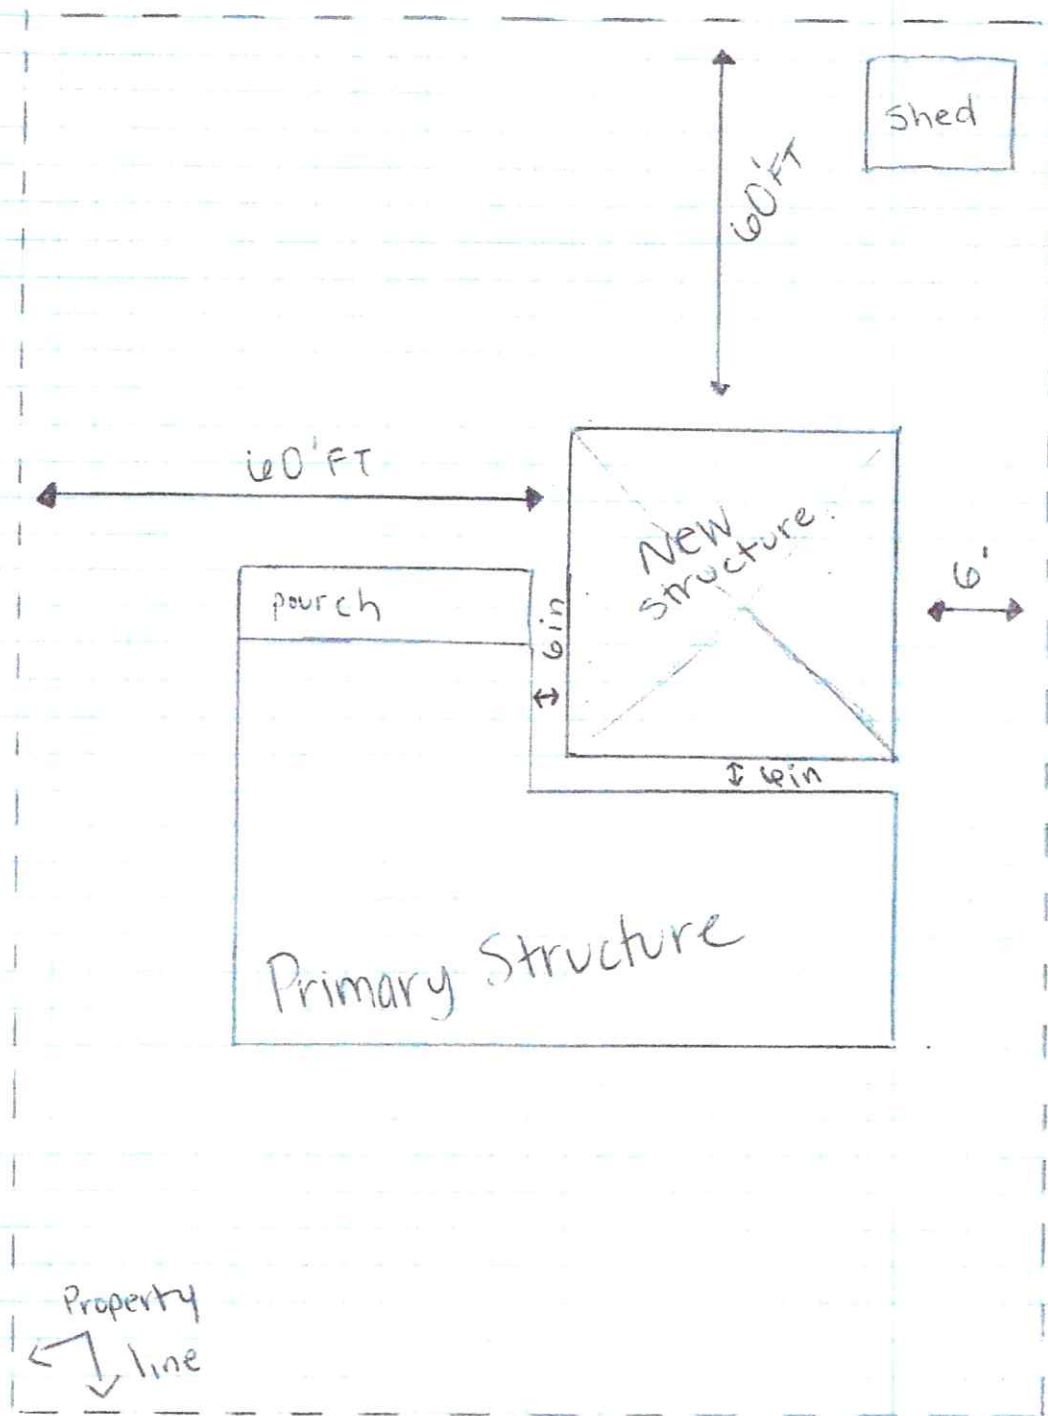 shed
60'FT
60'FT
New
structure.
6'
pourch
6in
6in
Primary Structure
Property
line